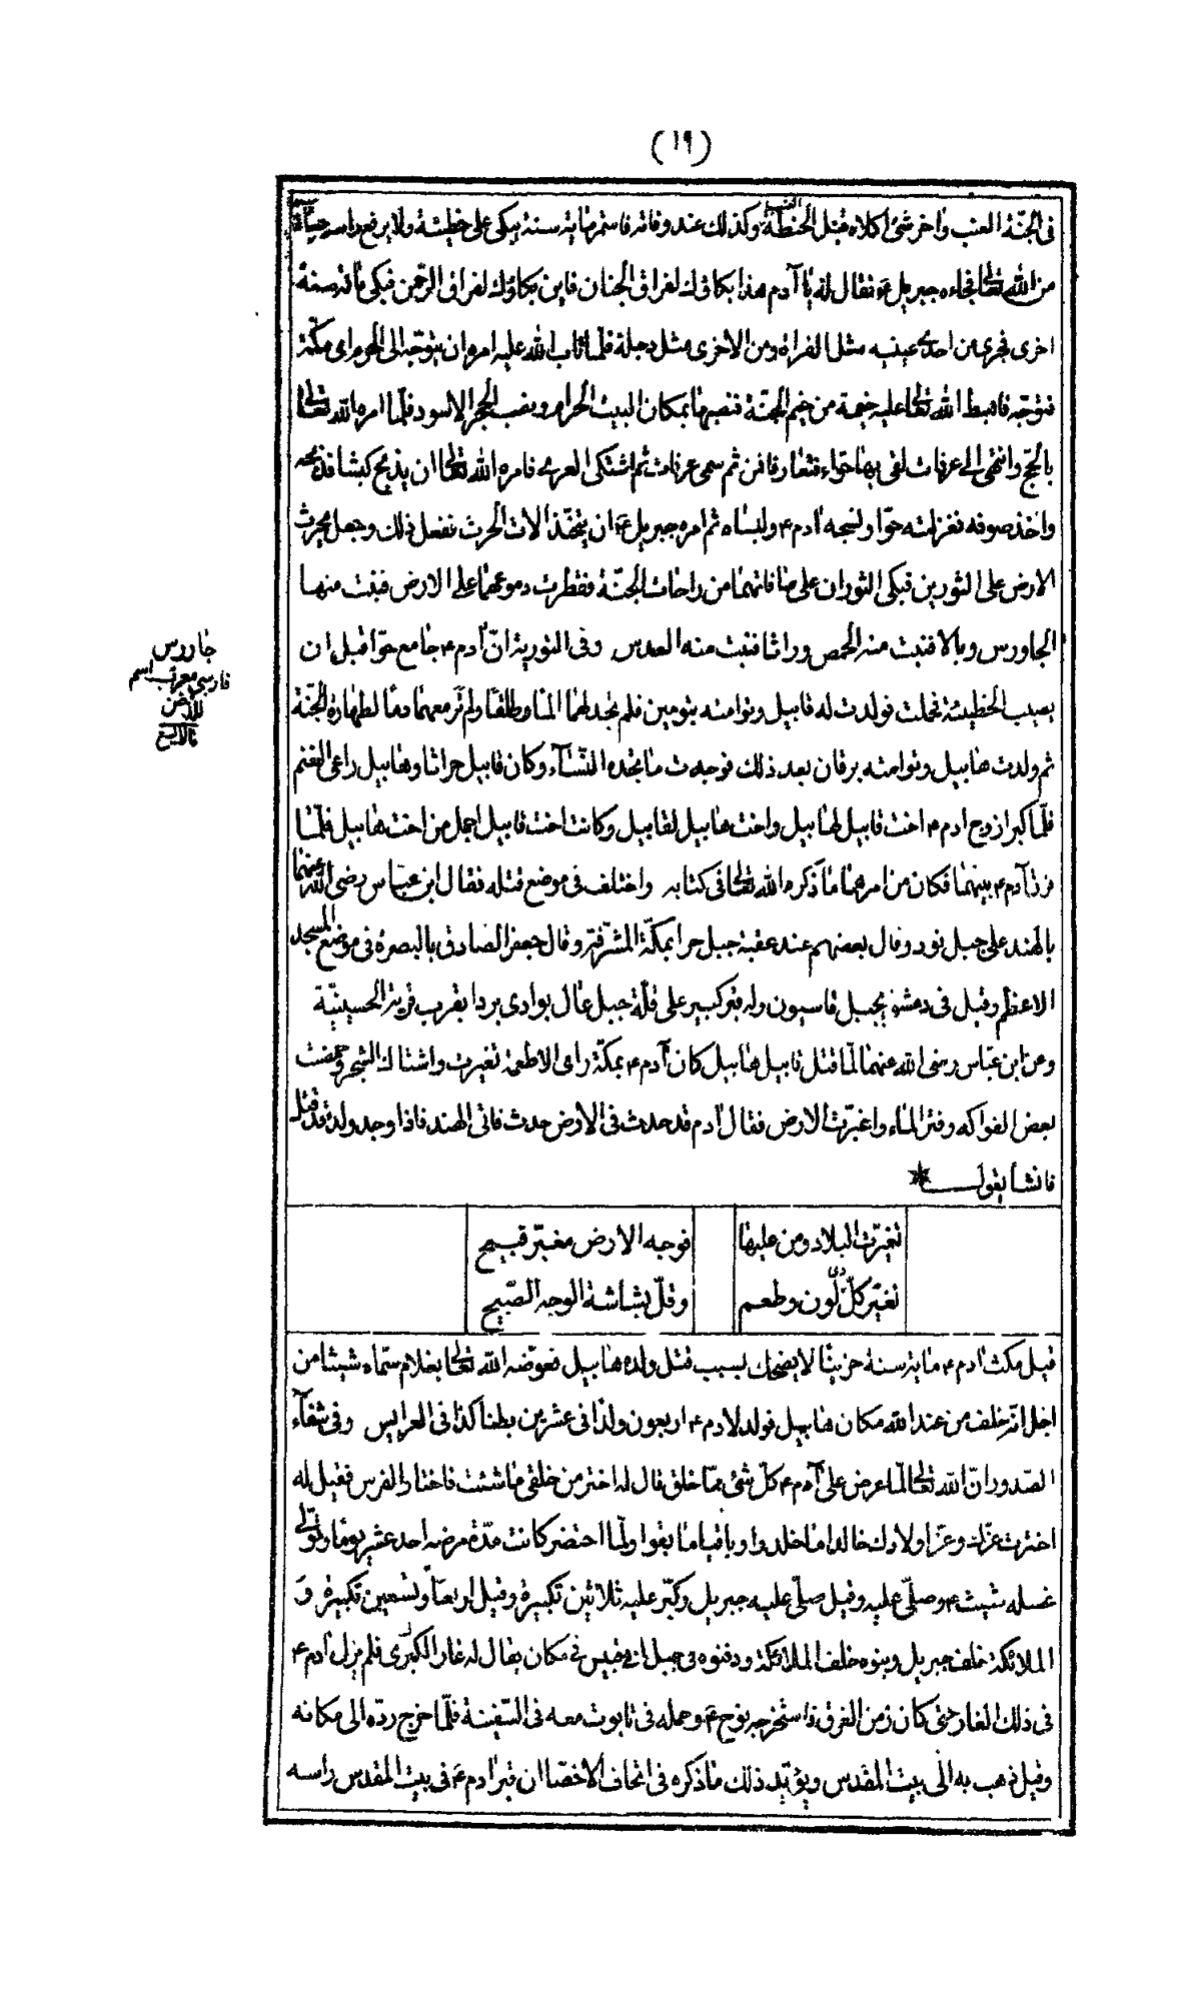 (١٩)
فى الجنّة العنب واخر شئ اكلاه قبل الحنطة العنب وكذلك عند وفاته فاستمر مائة سنة يبكى على خطيئته ولا يرفع راسه حياء
من الله تعالى فجاءه جبريل ع م فقال له يا آدم هذا بكاؤك لفراق الجنان فاين بكاؤك لفراق الرحمن فبكى مائة سنة
اخرى فجرى من احدى عينيه مثل الفراة ومن الاخرى مثل دجلة فلمّا تاب الله عليه امره ان يتوجّه الى الحرم اى مكّة
فتوجّه فاهبط الله تعالى عليه خيمة من خيم الجنّة فنصبها بمكان البيت الحرام ونصب الحجر الاسود فلمّا امره الله تعالى
بالحجّ وانتهى الى عرفات لقى بها حوّاء فتعارفا فمن ثم سمى عرفات ثم اشتكى العرى فامره الله تعالى ان يذبح كبشا فذبحه
واخذ صوفه فغزلته حوّا ونسجه ادم ع م ولبساه ثم امره جبريل ع م ان يتّخذ الات الحرث ففعل ذلك وجعل يحرث
الارض على الثورين فبكى الثوران على ما فاتهما من راحات الجنّة فقطرت دموعهما على الارض فنبت منها
الجاورس وبالا فنبت منه الحمص وراثا فنبت منه العدس وفى التورية انّ ادم ع م جامع حوّا قبل ان
يصيب الخطيئة فحملت فولدت له قابيل وتوامته بتومين فلم تجد لهما الما ولا طلقا ولم تر معهما دما لطهارة الجنّة
ثم ولدت هابيل وتوامته برقان بعد ذلك فوجدت ما تجده النّسآء وكان قابيل حراثا وهابيل راعى الغنم
فلمّا كبرا زوج ادم ع م اخت قابيل لهابيل واخت هابيل لقابيل وكانت اخت قابيل اجمل من اخت هابيل فلمّا
آدم ع م بينهما فكان من امرهما ما ذكره الله تعالى فى كتابه واختلف فى موضع قتله فقال ابن عبّاس رضى الله عنهما
بالهند على جبل نود وقال بعضهم عند عقبة جبل حرا بمكّة المشرّفة وقال جعفر الصادق بالبصرة فى موضع المسجد
الاعظم وقيل فى دمشق بجبل قاسيون وله قبر كبير على قلّة جبل عال بوادى بردا بقرب قرية الحسينيّة
وعن ابن عبّاس رضى الله عنهما لمّا قتل قابيل هابيل كان آدم ع م بمكّة راى الاطعمة تغيرت واشتاك الشجر وحمضت
بعض الفواكه وفتر الماء واغبرّت الارض فقال ادم قد حدث فى الارض حدث فاتى الهند فاذا وجد ولده قد قتل
فانشا يقول
تغيّرت البلاد ومن عليها فوجه الارض مغبّر قبيح
تغيّر كلّ ذى لون وطعم وقلّ بشاشة الوجه الصّبيح
قيل مكث ادم ع م مائة سنة حزينا لا يضحك بسبب قتل ولده هابيل فعوّضه الله تعالى بغلام سمّاه شيثا من
اجل انّه خلف من عند الله مكان هابيل فولد لادم ع م اربعون ولدا فى عشرين بطنا كذا فى العرايس وفى شفآء
الصّدور انّ الله تعالى لمّا عرض على آدم ع م كلّ شئ ممّا خلق قال له اختر من خلقى ما شئت فاختار الفرس فقيل له
اخترت عزّك وعزّ اولادك خالدا ما خلدوا وباقيا ما بقوا ولمّا احتضر كانت مدّة مرضه احد عشر يوما وتولّى
غسله شيث ع م وصلّى عليه وقيل صلّى عليه جبريل وكبّر عليه ثلاثين تكبيرة وقيل اربعا وتسعين تكبيرة و
الملائكة خلف جبريل وبنوه خلف الملائكة ودفنوه فى جبل ابى قبيس فى مكان يقال له غار الكبرى فلم يزل ادم ع م
فى ذلك الغار حتى كان زمن الغرق فاستخرجه نوح ع م وحمله فى تابوت معه فى السّفينة فلمّا خرج ردّه الى مكانه
وقيل ذهب به الى بيت المقدس ويؤيّد ذلك ما ذكره فى اتحاف الاخصّا ان قبر ادم ع م فى بيت المقدس راسه
جاورس
فارسى معرب اسم